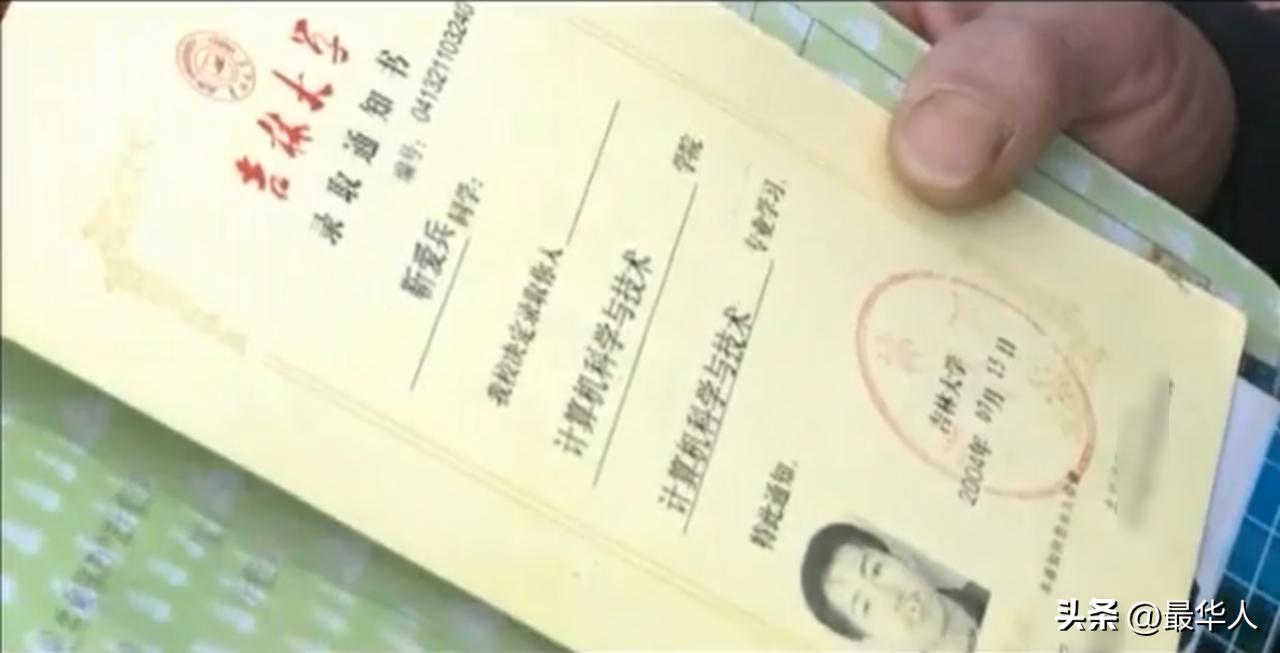 吉林大学
录取通知书
编号: 041321103240
靳爱兵同学:
我校决定录取你入
计算机科学与技术 学院
计算机科学与技术 专业学习.
特此通知.
吉林大学
2004年 07月 15日
头条 @最华人